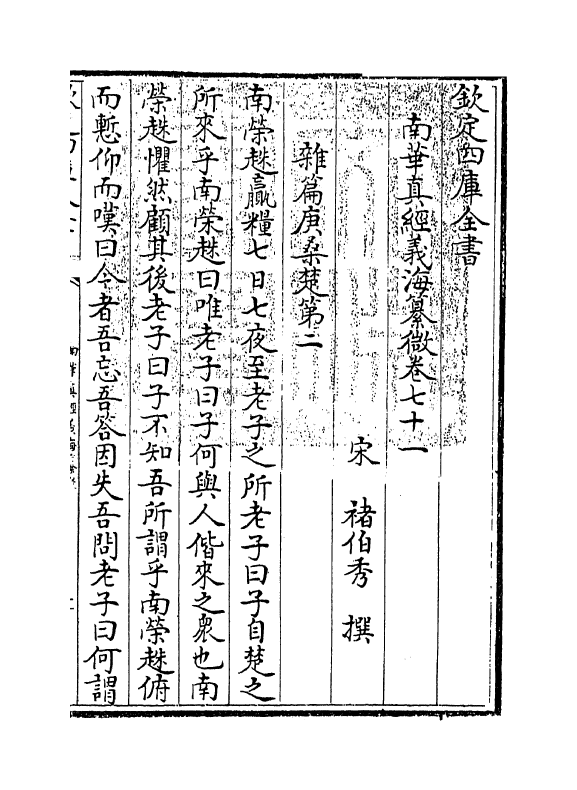 欽定四庫全書
南華真經義海纂微卷七十一
宋　褚伯秀　撰
雜篇庚桑楚第二
南榮趎贏糧七日七夜至老子之所老子曰子自楚之
所來乎南榮趎曰唯老子曰子何與人偕來之衆也南
榮趎懼然顧其後老子曰子不知吾所謂乎南榮趎俯
而慙仰而嘆曰今者吾忘吾答因失吾問老子曰何謂